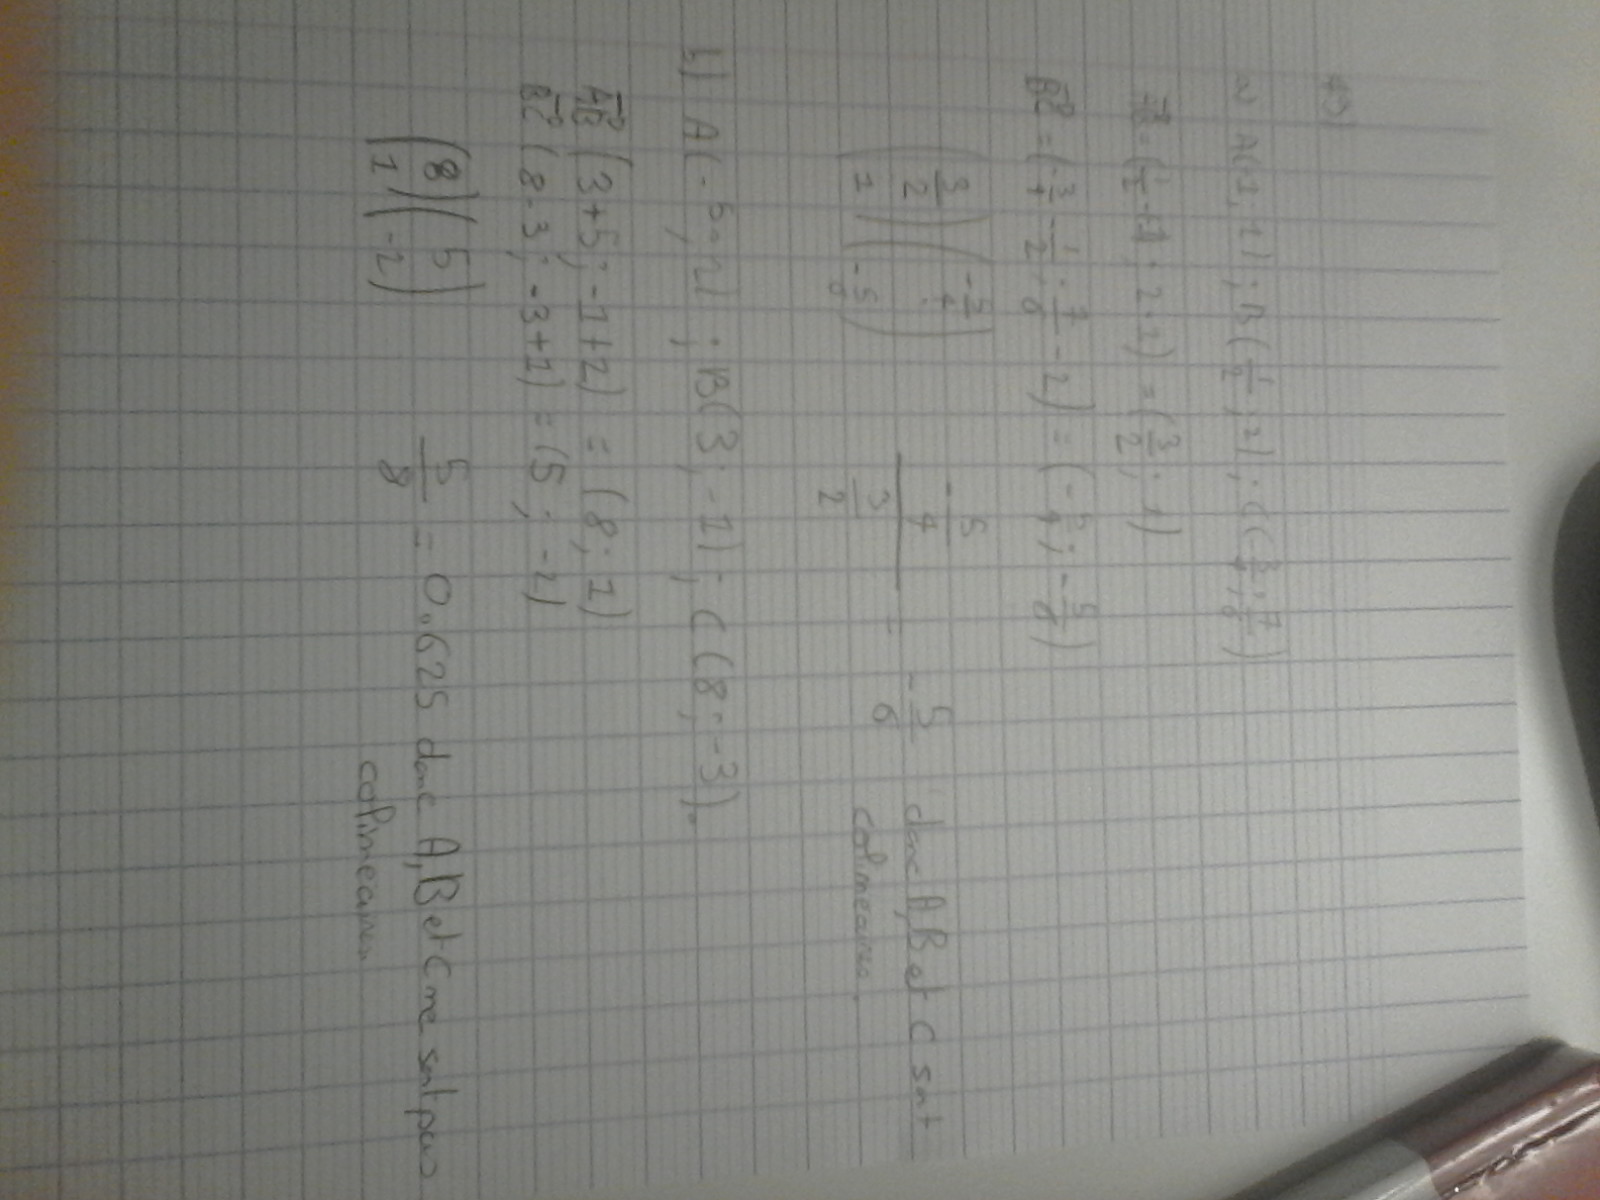 a) A(-1; 1) ; B(1/2 ; 2) ; C(-3/4 ; 7/6)
AB = (1/2 + 1 ; 2-1) = (3/2 ; 1)
BC = (-3/4 - 1/2 ; 7/6 - 2) = (-5/4 ; -5/6)
(3/2 1) (-5/4 -5/6) (-5/4)/(3/2) = -5/6 donc A, B et C sont
colinéaires.
b) A(-5; -2) ; B(3; -1) ; C(8; -3).
AB (3+5; -1+2) = (8; 1)
BC (8-3; -3+1) = (5; -2)
(8 1) (5 -2) 5/8 = 0.625 donc A, B et C ne sont pas
colinéaires